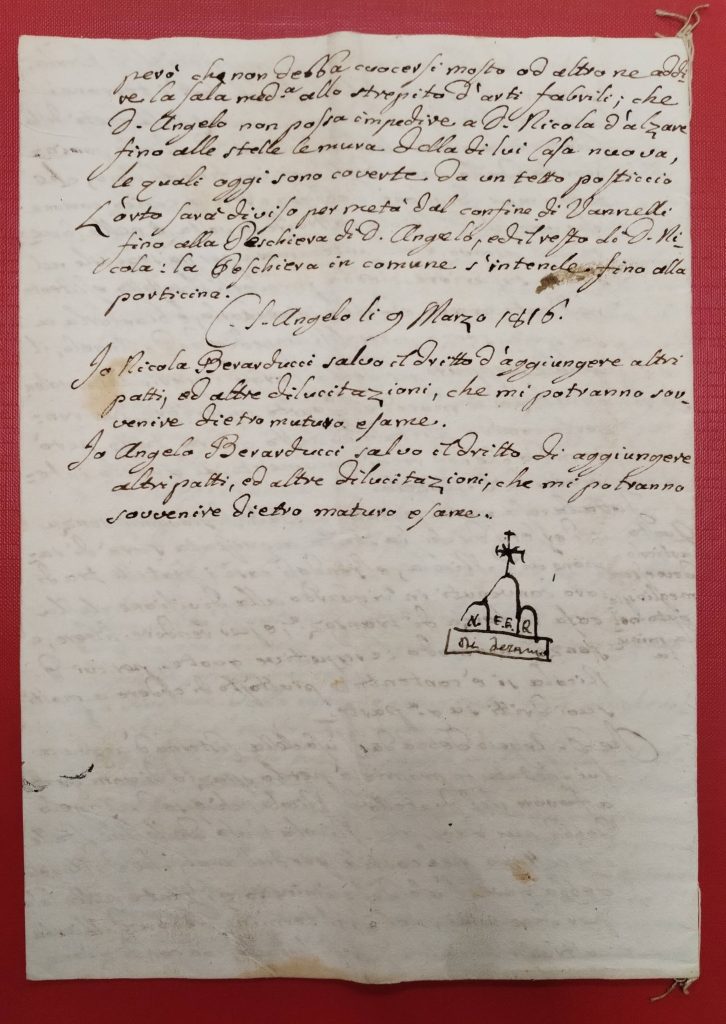 però che non debba cuocersi mosto od altro ne addi-
re la sala med.ª allo strepito d'arti fabrili; che
D. Angelo non possa impedire a D. Nicola d'alzare
fino alle stelle le mura della di lui Casa nuova,
le quali oggi sono coverte da un tetto posticcio
L'orto sarà diviso per metà dal confine di Vannelli
fino alla Peschiera di D. Angelo, ed il resto di D. Ni-
cola: la Peschiera in comune s'intende fino alla
porticina.
C. S. Angelo li 9 Marzo 1816.
Io Nicola Berarducci salvo il dritto d'aggiungere altri
patti, ed altre dilucitazioni, che mi potranno sov-
venire dietro maturo esame.
Io Angelo Berarducci salvo il dritto di aggiungere
altri patti, ed altre dilucitazioni, che mi potranno
sovvenire dietro maturo esame.
E.E.